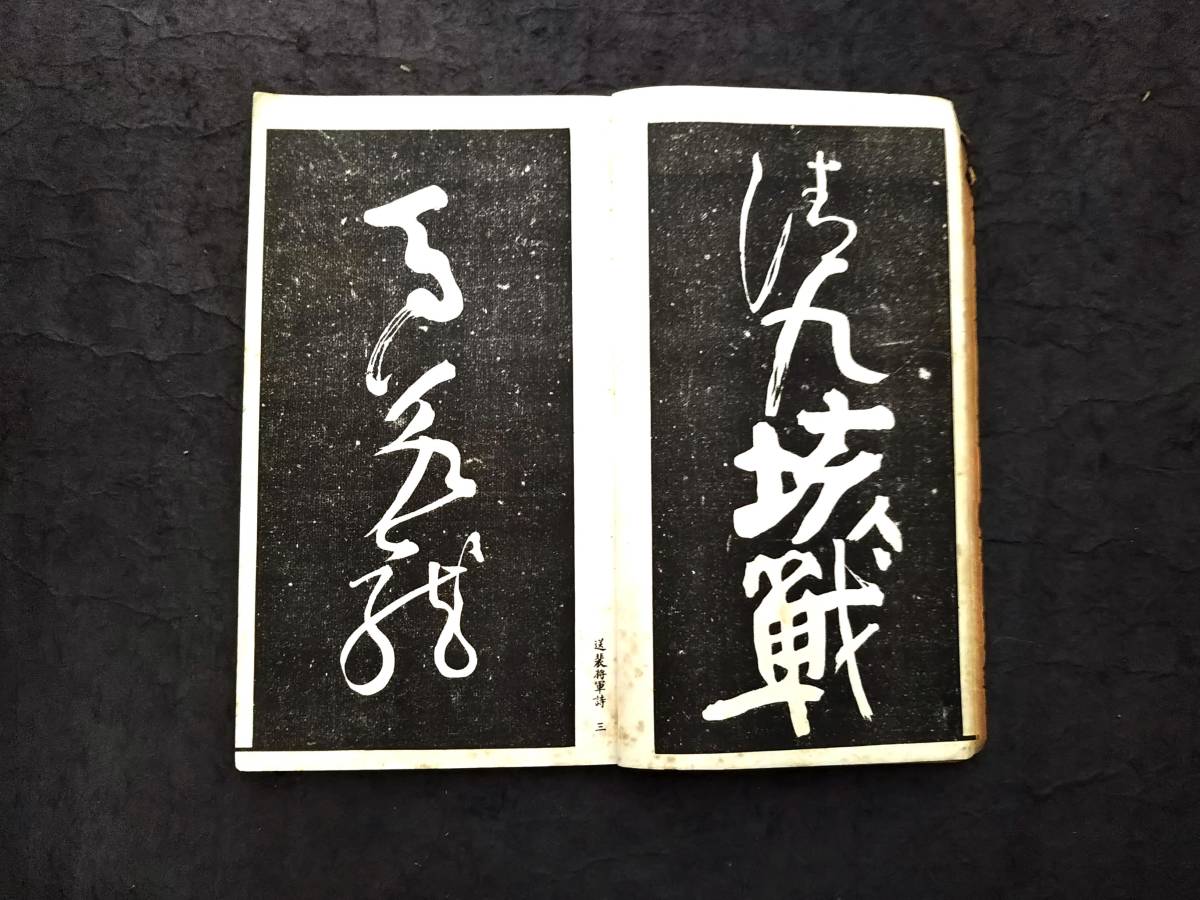 清九垓戰
馬若龍
送裴將軍詩 三